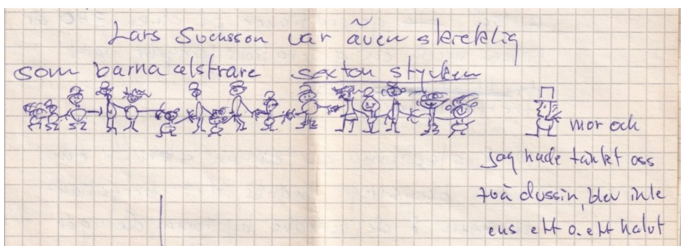 Lars Svensson var även skrecklig
som barnaalstrare sexton stycken
mor och
jag hade tänkt oss
två dussin, blev inte
ens ett o. ett halvt